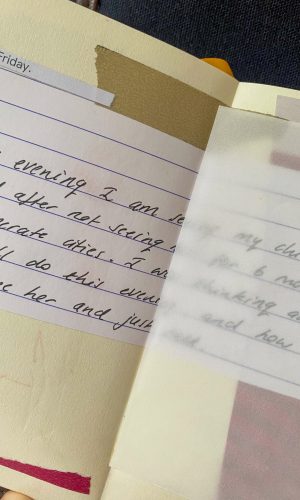 Friday.
evening I am se my
after not seeing for 6 mo
erate cities. I a thinking a
ll do this eveni and how
her and just